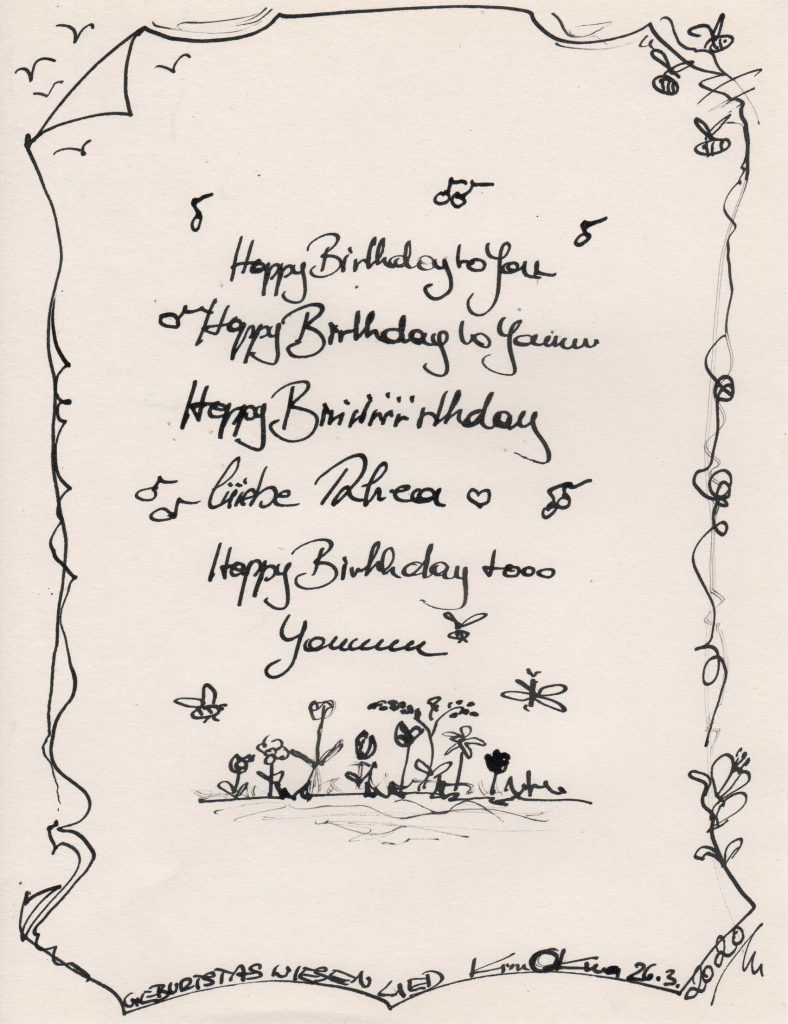 Happy Birthday to You
Happy Birthday to Youuuu
Happy Biiiiiiiirthday
liiiebe Rhea ♡
Happy Birthday tooo
Youuuuu
GEBURTSTAS WIESEN LIED 26.3.2020